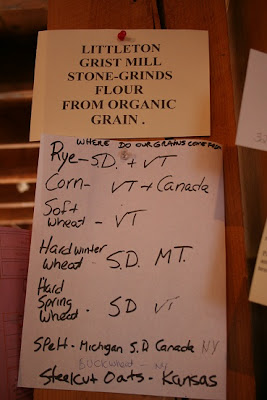 LITTLETON
GRIST MILL
STONE-GRINDS
FLOUR
FROM ORGANIC
GRAIN.
WHERE DO OUR GRAINS COME FROM
Rye - S.D. + VT
Corn - VT + Canada
Soft
wheat - VT
Hard winter
wheat - S.D. MT.
Hard
Spring
Wheat - SD VT
Spelt - Michigan S.D Canada NY
BUCKWHEAT - NY
Steelcut Oats - Kansas